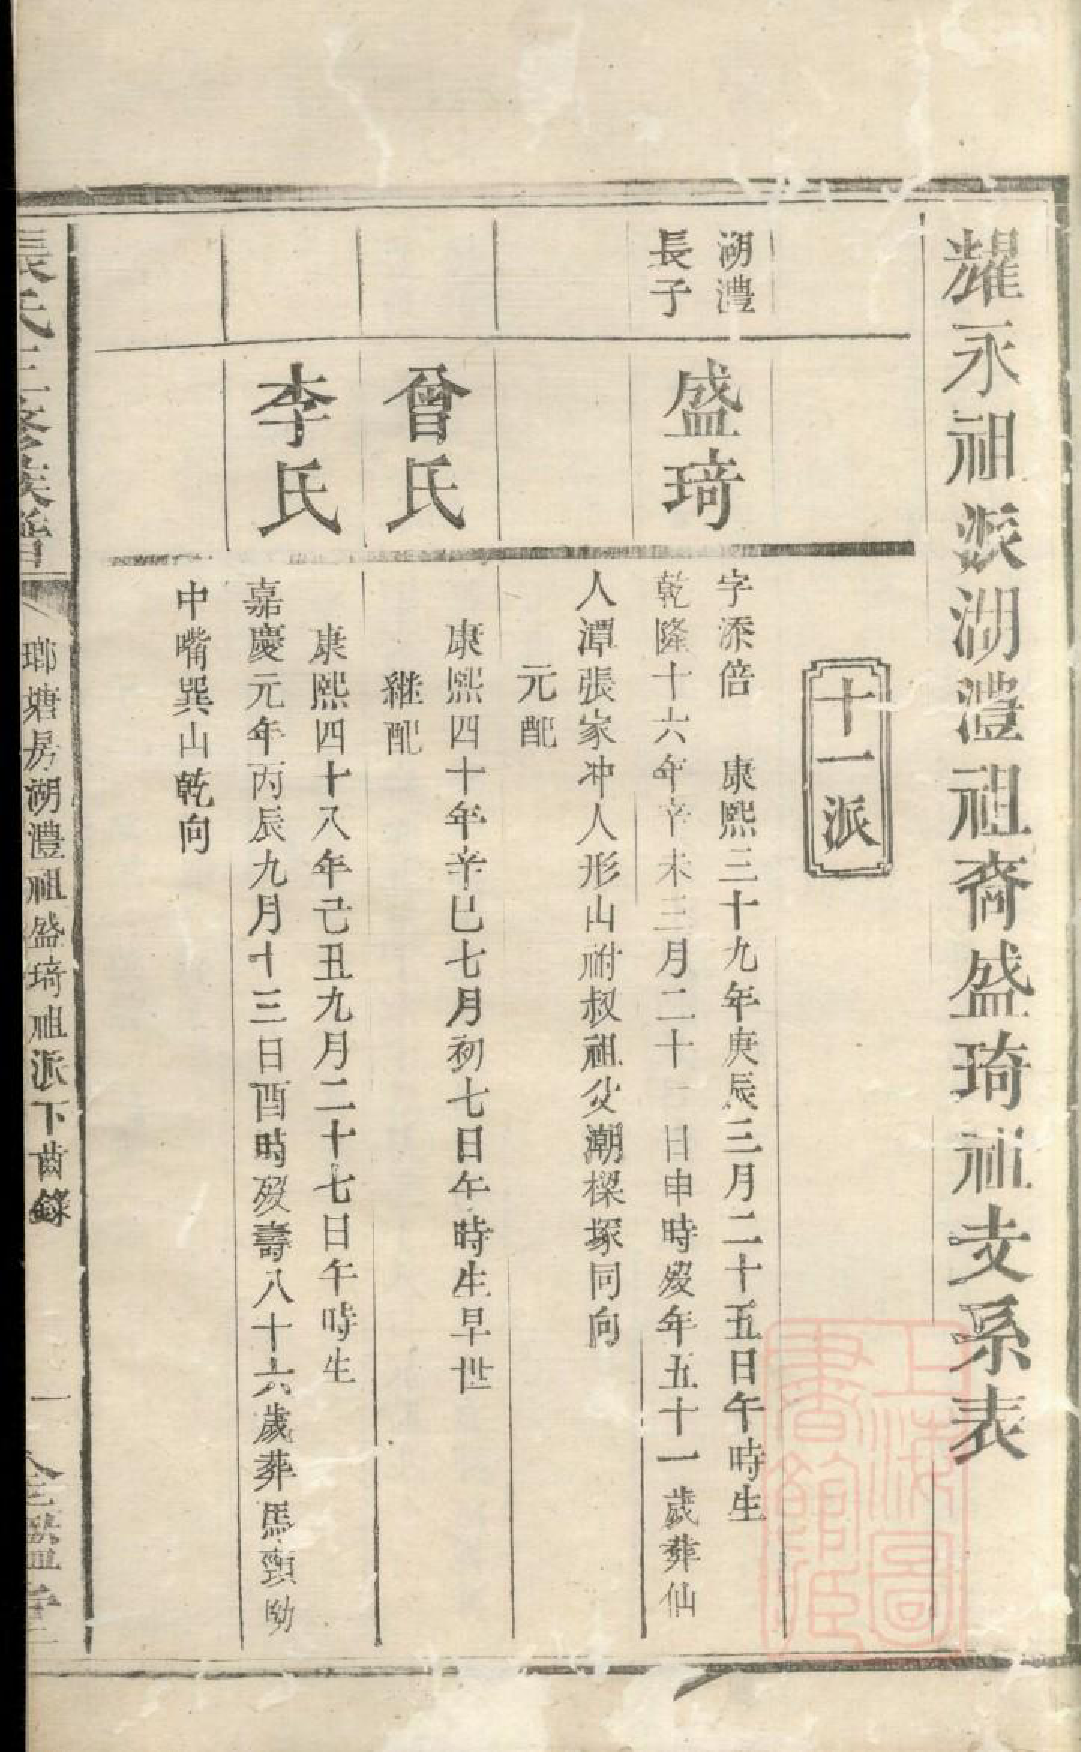 耀永祖派湖澧祖裔盛琦祖支系表
十一派
湖澧
長子
盛琦
字添倍 康熙三十九年庚辰三月二十五日午時生
乾隆十六年辛未三月二十一日申時歿年五十一歲葬仙
人潭張家冲人形山祔叔祖父潮樑塚同向
元配
曾氏
康熙四十年辛巳七月初七日午時生早世
継配
李氏
康熙四十八年己丑九月二十七日午時生
嘉慶元年丙辰九月十三日酉時歿壽八十六歲葬馬頸坳
中嘴巽山乾向
張氏三修族譜
瑯塘房湖澧祖盛琦祖派下齒錄
一
金鑑堂
上海圖書館藏